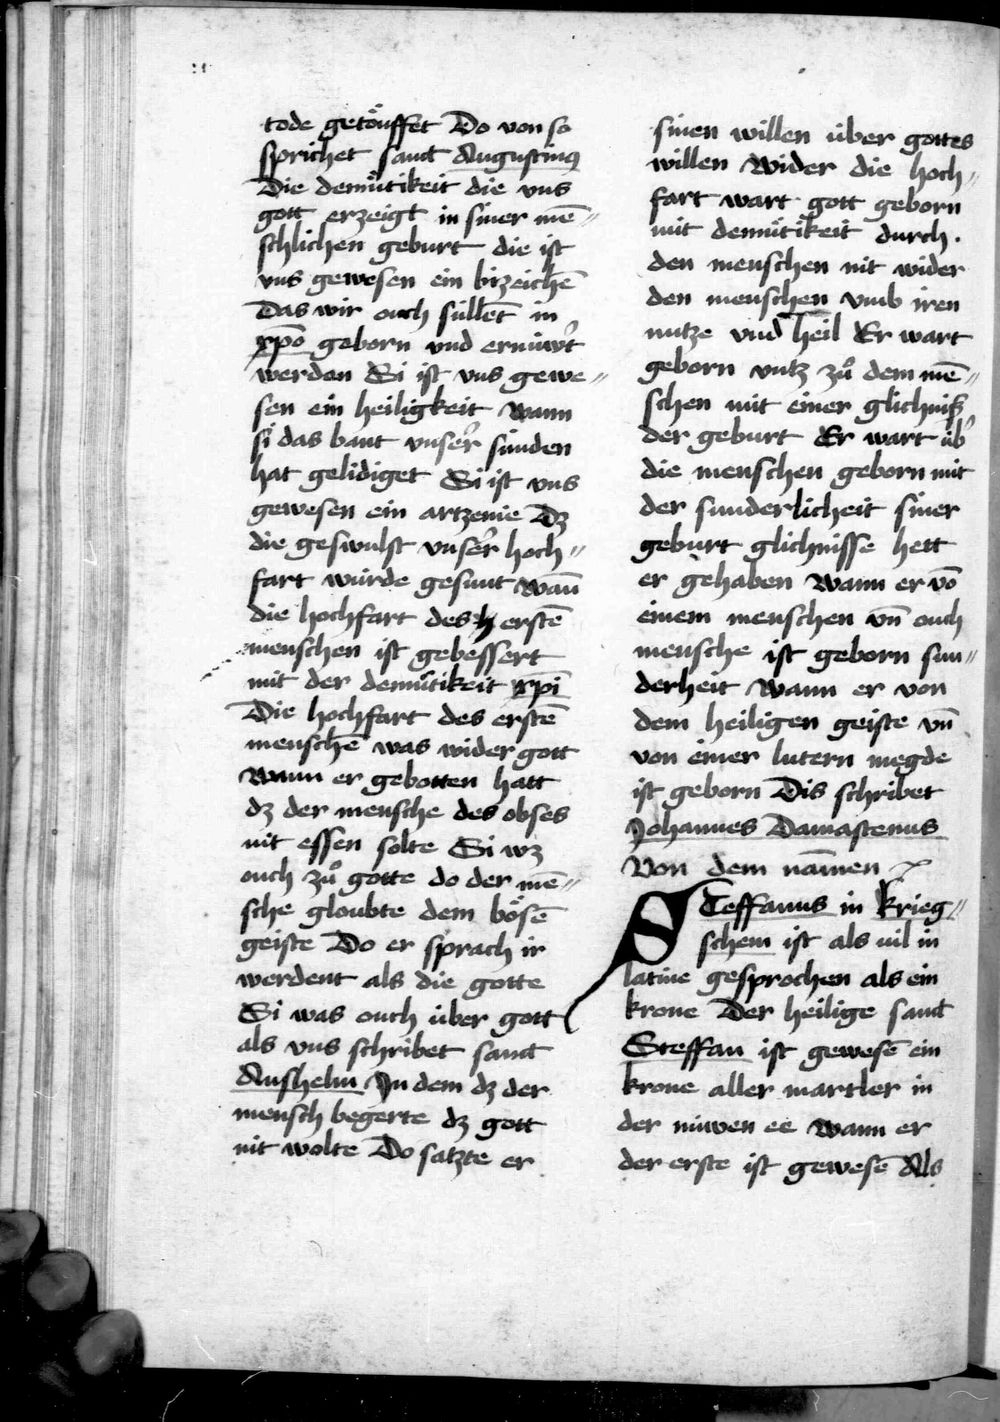 tode getoͤuffet Do von so
sprichet sanct Augustinꝰ
Die demuͤtikeit die vns
gott erzeigt in siner mē⸗
schlichen geburt die ist
vns gewesen ein bizeichē
Das wir ouch süllēt in
xp̄o geborn vnd ernüwt᷑
werden Si ist vns gewe⸗
sen ein heiligkeit wann
si das bant vnser᷑ sünden
hat gelidiget Si ist vns
gewesen ein artzenie dz
die geswulst vnser᷑ hoch⸗
fart würde gesunt wañ
die hochfart des erstē
menschen ist gebessert
mit der demuͤtikeit xp̄i
Die hochfart des erstē
menschē was wider gott
wann er gebotten hatt
dz der mensche des obses
nit essen solte Si wz
ouch zuͦ gotte do der mē⸗
sche gloubte dem boͤsē
geiste Do er sprach ir
werdent als die gotte
Si was ouch über gott
als vns schribet sanct
Anshelm In dem dz der
mensch begerte dz gott
nit wolte Do satzte er
sinen willen über gottes
willen wider die hoch⸗
fart wart gott geborn
mit demuͤtikeit durch
den menschen nit wider
den menschen vmb iren
nutze vnd heil Er wart
geborn vntz zuͦ dem mē⸗
schen mit einer glichniß
der geburt Er wart üb᷑
die menschen geborn mit
der sunderlicheit siner
geburt glichnisse hett
er gehaben wann er vō
einem menschen vn̄ ouch
mensche ist geborn sun⸗
derheit wann er von
dem heiligen geiste vn̄
von einer lutern megde
ist geborn Dis schribet
Johannes Damastenus
Von dem nam̄en
Steffanus in krieg⸗
schem ist als vil in
latine gesprochen als ein
krone Der heilige sanct
Steffan ist gewesē ein
krone aller martler in
der nüwen ee wann er
der erste ist gewesē Als